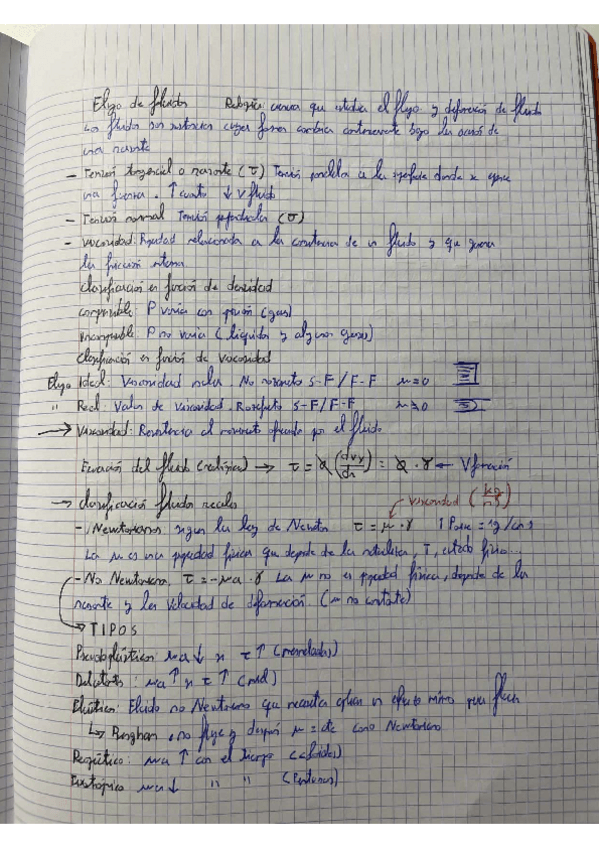 Flujo de fluidos Reología: ciencia que estudia el flujo y deformación de fluido
Los fluidos son sustancias cuyas formas cambian continuamente bajo la acción de
una cortante
- Tensión tangencial o cortante (τ) Tensión paralela a la superficie donde se ejerce
una fuerza. ↑ ↓ v fluido
- Tensión normal Tensión perpendicular (σ)
- Viscosidad: Propiedad relacionada a la de un fluido y que genera
la fricción interna
Clasificación en función de densidad
compresible: P varía con presión (gas)
incompresible: P no varía (líquidos y algunos gases)
Clasificación en función de viscosidad
Flujo Ideal: Viscosidad nula. No S-F / F-F μ=0
" Real: Valor de viscosidad. S-F/F-F μ≠0
→ Viscosidad: Resistencia al movimiento ofrecido por el fluido
Ecuación del fluido (reológica) → τ = α (dvy/dn) = α · γ ← V formación
→ Clasificación fluidos reales viscosidad
- Newtonianos: siguen la ley de Newton τ = μ · γ 1 Poise = 1g/cm s
La μ es una propiedad física que depende de la naturaleza, T, estado físico...
- No Newtoniano, τ = -μa · γ La μ no es propiedad física, depende de la
cortante y la velocidad de deformación. (μ no constante)
→ TIPOS
Pseudoplásticos: μa ↓ si τ ↑ (mermeladas)
Dilatantes: μa ↑ si τ ↑ (miel)
Plásticos: Fluido no Newtoniano que necesita aplicar un esfuerzo mínimo para fluir
↳ Bingham, no fluye y después μ = cte como Newtoniano
Reopéctico: μa ↑ con el tiempo
Tixotrópico μa ↓ " " (Pinturas)